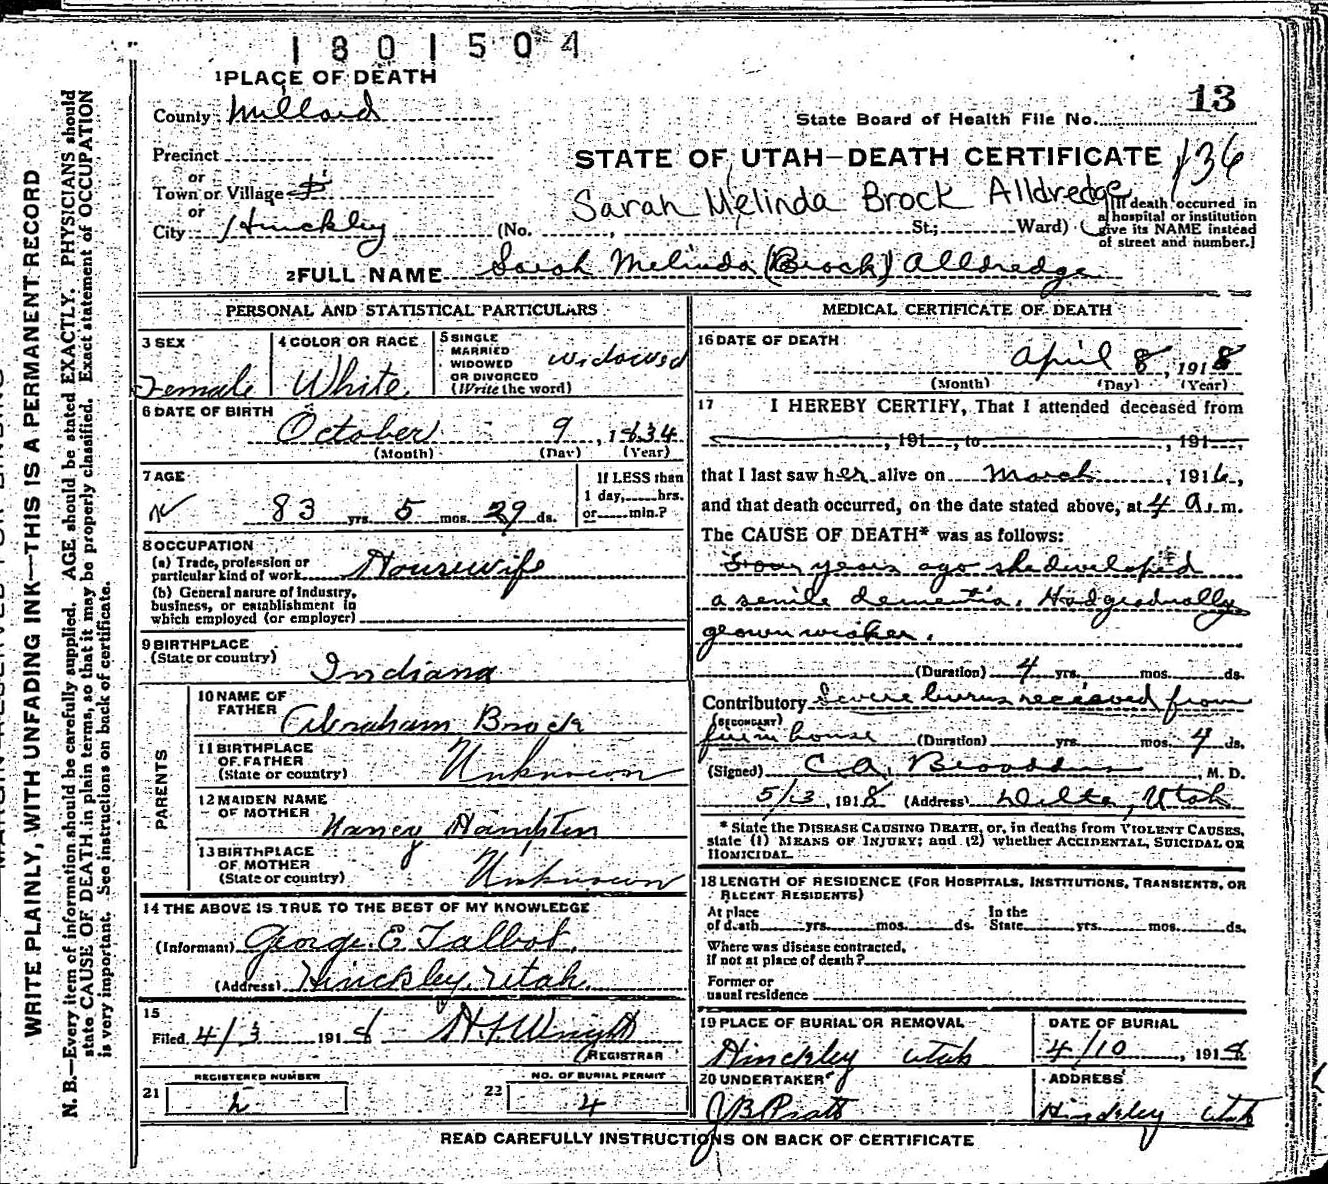 1801504
1 PLACE OF DEATH
13
County Millard
State Board of Health File No.
Precinct
STATE OF UTAH—DEATH CERTIFICATE 136
or
Town or Village
Sarah Melinda Brock Alldredge
or
City Hinckley (No. , St.; Ward)
[If death occurred in
a hospital or institution
give its NAME instead
of street and number.]
2 FULL NAME Sarah Melinda (Brock) Alldredge
PERSONAL AND STATISTICAL PARTICULARS
3 SEX
Female
4 COLOR OR RACE
White
5 SINGLE
MARRIED
WIDOWED
OR DIVORCED
(Write the word)
widowed
6 DATE OF BIRTH
October 9, 1834
(Month) (Day) (Year)
7 AGE
83 yrs. 5 mos. 29 ds.
If LESS than
1 day, hrs.
or min.?
8 OCCUPATION
(a) Trade, profession or
particular kind of work Housewife
(b) General nature of industry,
business, or establishment in
which employed (or employer)
9 BIRTHPLACE
(State or country)
Indiana
PARENTS
10 NAME OF
FATHER
Abraham Brock
11 BIRTHPLACE
OF FATHER
(State or country)
Unknown
12 MAIDEN NAME
OF MOTHER
Nancy Hampton
13 BIRTHPLACE
OF MOTHER
(State or country)
Unknown
14 THE ABOVE IS TRUE TO THE BEST OF MY KNOWLEDGE
(Informant) George E Talbot
(Address) Hinckley, Utah
15
Filed 4/3 1918 H. F. Wright
REGISTRAR
REGISTERED NUMBER
21 2
NO. OF BURIAL PERMIT
23 4
MEDICAL CERTIFICATE OF DEATH
16 DATE OF DEATH
April 8, 1918
(Month) (Day) (Year)
17 I HEREBY CERTIFY, That I attended deceased from
, 191 , to , 191 ,
that I last saw her alive on March, 1916,
and that death occurred, on the date stated above, at 4 a.m.
The CAUSE OF DEATH* was as follows:
Four years ago she developed
a senile dementia. Had gradually
grown weaker.
(Duration) 4 yrs. mos. ds.
Contributory Severe burns received from
(SECONDARY)
fire in house (Duration) yrs. mos. 4 ds.
(Signed) C.A. Broaddus, M. D.
5/3, 1918 (Address) Delta, Utah
* State the DISEASE CAUSING DEATH, or, in deaths from VIOLENT CAUSES,
state (1) MEANS OF INJURY; and (2) whether ACCIDENTAL, SUICIDAL OR
HOMICIDAL.
18 LENGTH OF RESIDENCE (FOR HOSPITALS, INSTITUTIONS, TRANSIENTS, OR
RECENT RESIDENTS)
At place
of death yrs. mos. ds.
In the
State yrs. mos. ds.
Where was disease contracted,
if not at place of death?
Former or
usual residence
19 PLACE OF BURIAL OR REMOVAL
Hinckley Utah
DATE OF BURIAL
4/10, 1918
20 UNDERTAKER
J B Pratt
ADDRESS
Hinckley Utah
READ CAREFULLY INSTRUCTIONS ON BACK OF CERTIFICATE
WRITE PLAINLY, WITH UNFADING INK—THIS IS A PERMANENT RECORD
N. B.—Every item of information should be carefully supplied. AGE should be stated EXACTLY. PHYSICIANS should
state CAUSE OF DEATH in plain terms, so that it may be properly classified. Exact statement of OCCUPATION
is very important. See instructions on back of certificate.